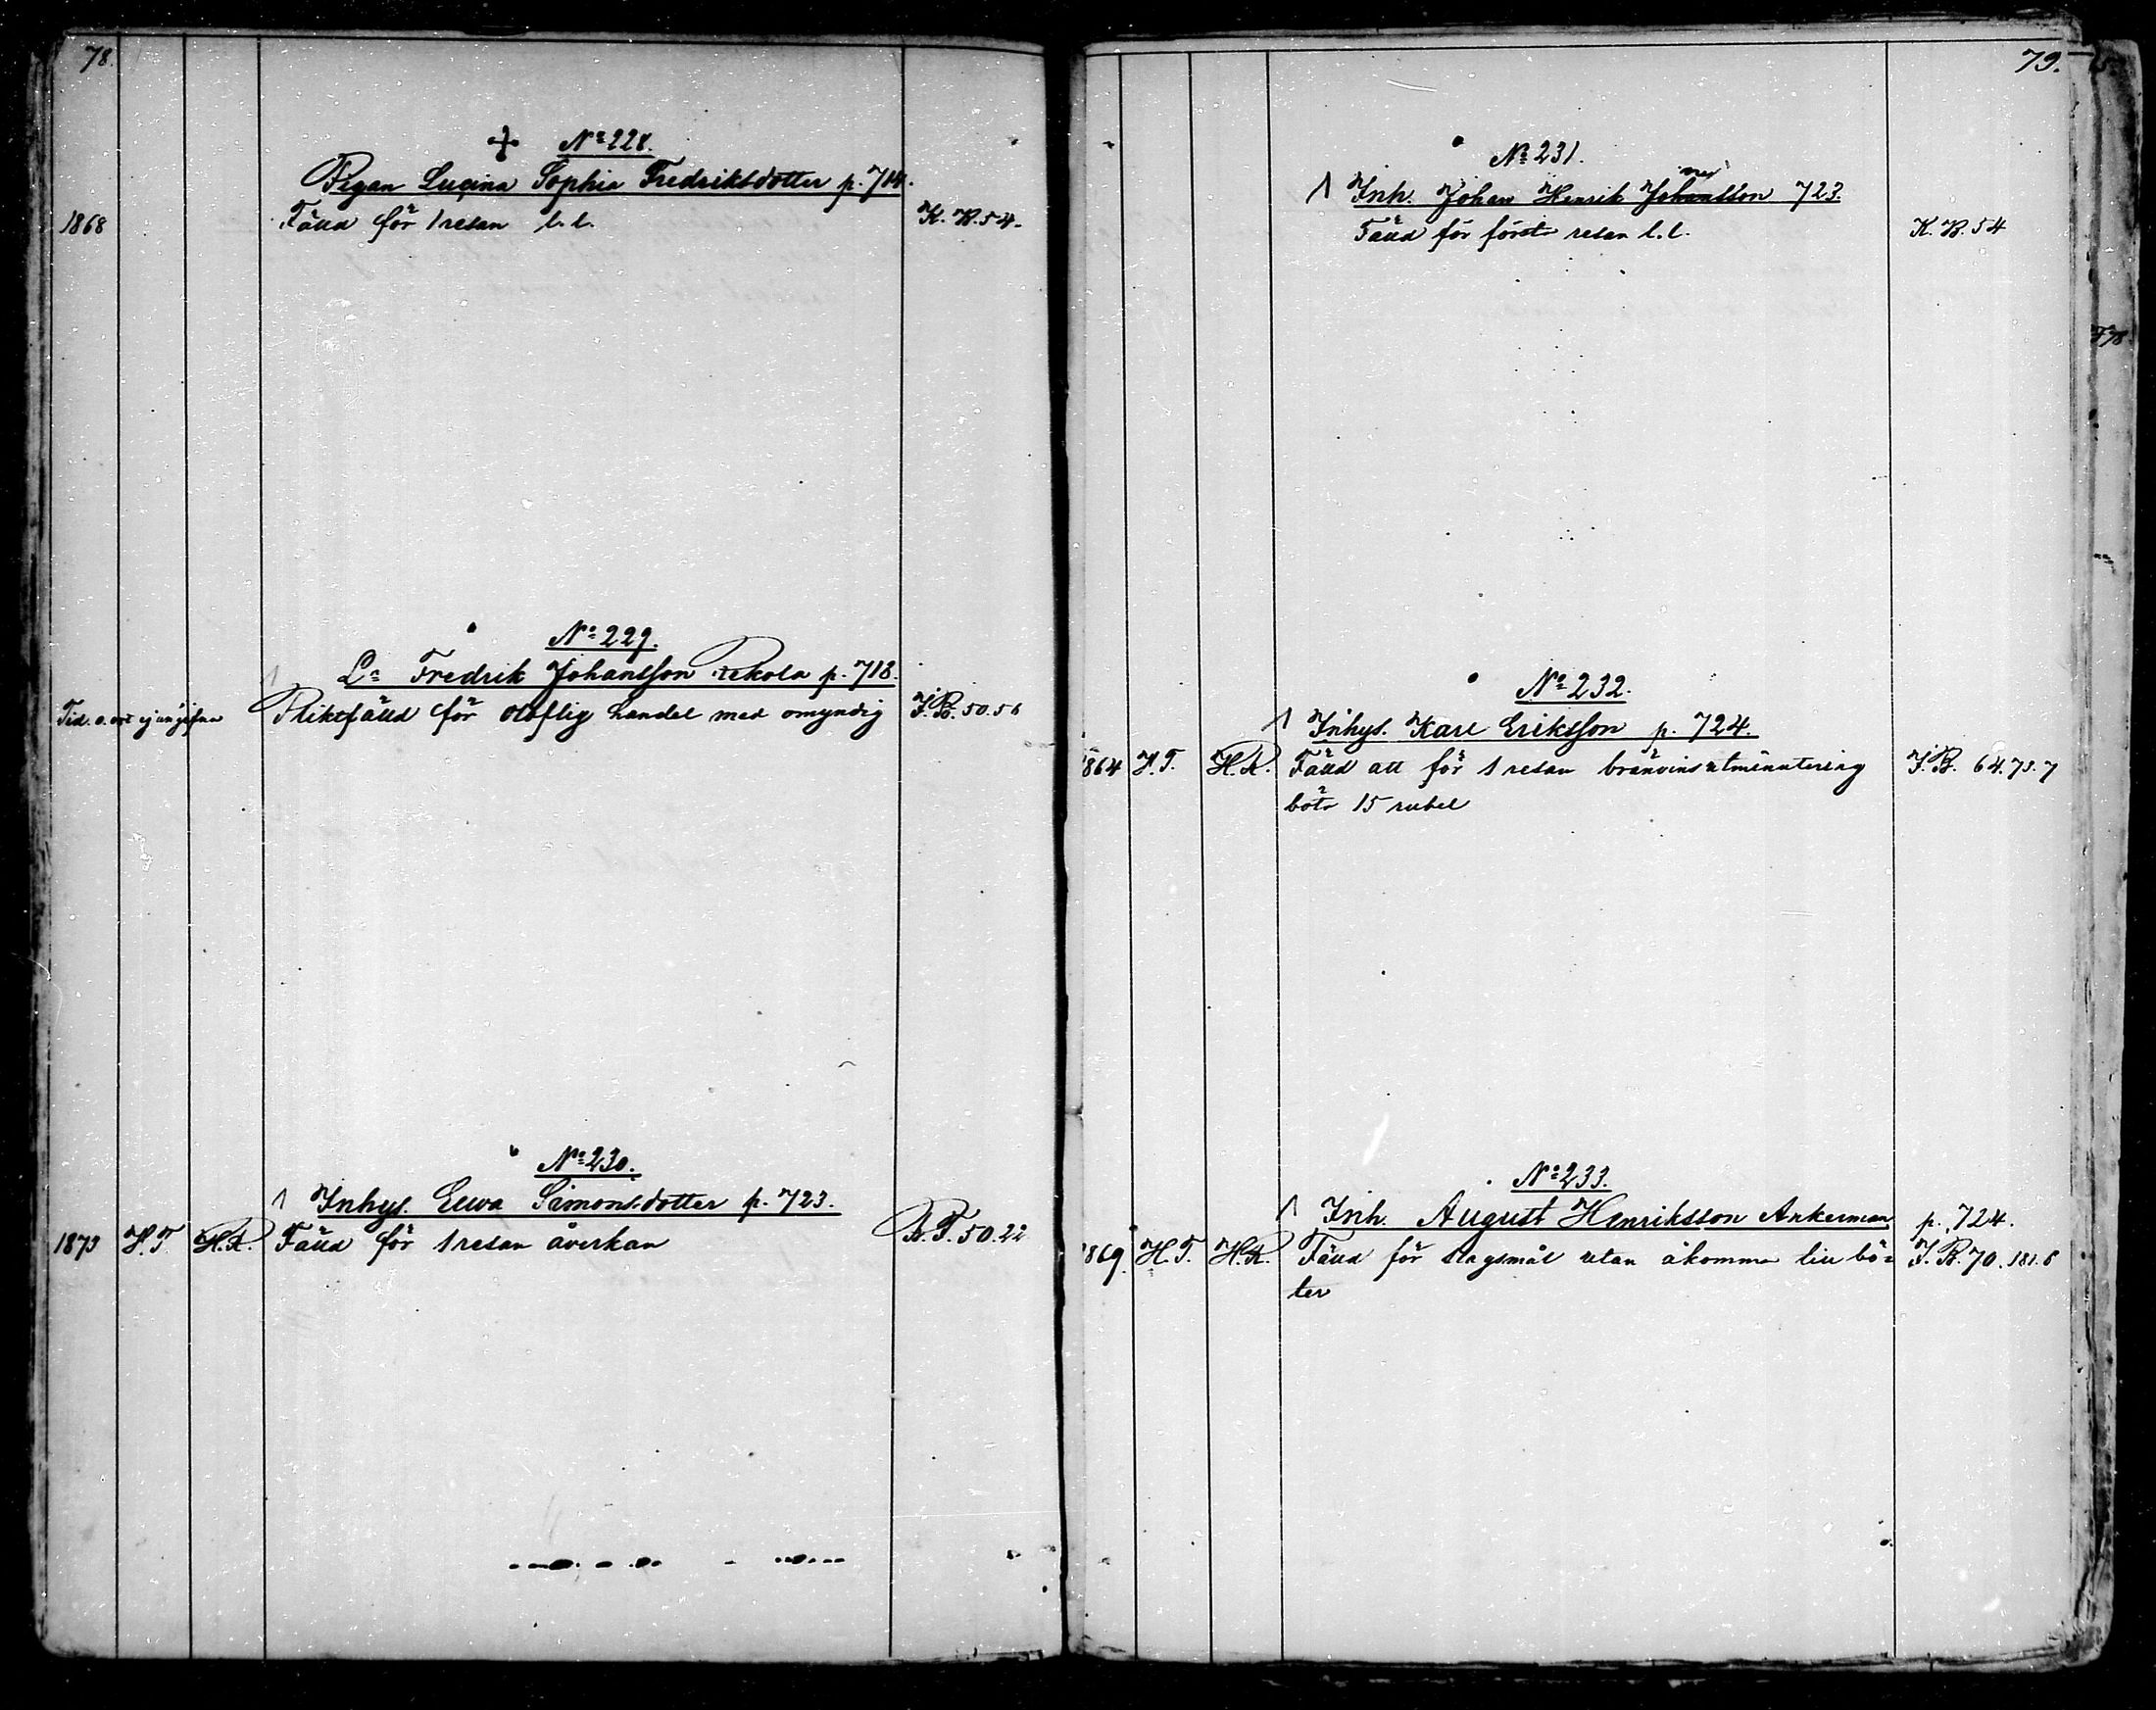 78.
№ 228.
Pigan Lucina Sophia Fredriksdotter p. 714.
1868 Fälld för 1 resan l. l. K. B. 54.
№ 229.
Ls Fredrik Johansson p. 718.
Tid o. ort ej angifna Pliktfälld för olaflig handel med omyndig J. B. 50. 56
№ 230.
Inhys. Eewa Simonsdotter p. 723.
1873 H. T. H. R. Fälld för 1 resan åverkan B. F. 50. 22
79.
№ 231.
Inh. Johan Henrik Johansson 723.
Fälld för första resan l. l. K. B. 54
№ 232.
Inhys. Karl Eriksson p. 724.
1864 H. T. H. R. Fälld att för 1 resan bränvinsutminutering J. B. 64. 75. 7
böta 15 rubel
№ 233.
Inh. August Henriksson Ankerman p. 724.
1869. H. T. H. R. Fälld för slagsmål utan åkomma till bö- J. B. 70. 181. 6
ter
78